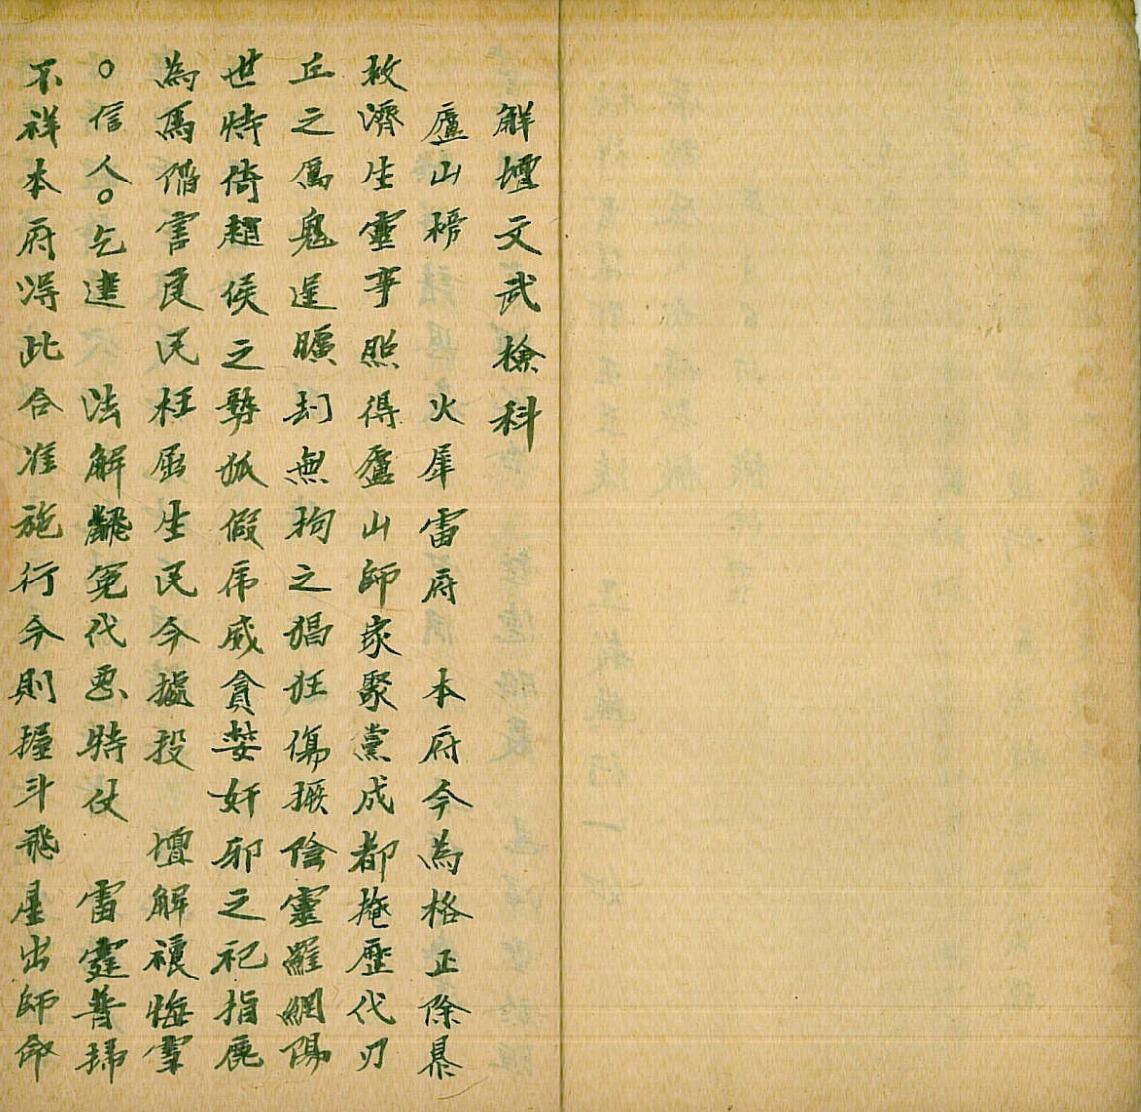 解壇文武檢科
廬山榜 火犀雷府 本府今為格正除暴
救濟生靈事照得廬山師家聚黨成都掩歷代刃
丘之厲鬼逞曠刦無拘之猖狂傷摭陰靈羅網陽
世恃倚趙侯之勢狐假虎威貪婪奸邪之祀指鹿
為馬僭害良民枉屈生民今據投 壇解禳悔雪
○信人○乞違 法解冤代惡特仗 雷霆普掃
不祥本府淂此合准施行今則握斗飛星出師命